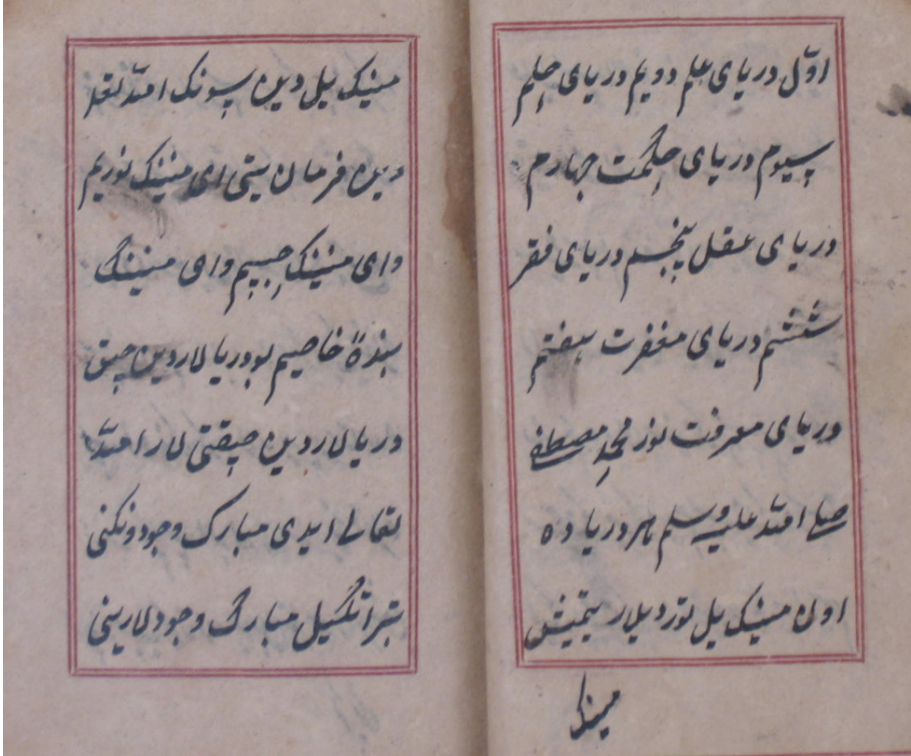 اوّل دریای علم دویم دریای حلم
سیوم دریای حکمت چهارم
دریای عقل پنجم دریای فقر
ششم دریای مغفرت هفتم
دریای معرفت نور محمد مصطفی
صلی الله علیه وسلم هر دریا ده
اون مینک ییل توردیلار یتمیش
مینک
مینک ییل دین سونک الله تعالی
دین فرمان یتتی ای مینینک نوریم
وای مینینک حبیبم وای مینینک
بندهٔ خاصیم بو دریالاردین چیق
دریالاردین چیقتی لار الله
تعالی ایدی مبارک وجودونکنی
تبراتگیل مبارک وجودلارینی